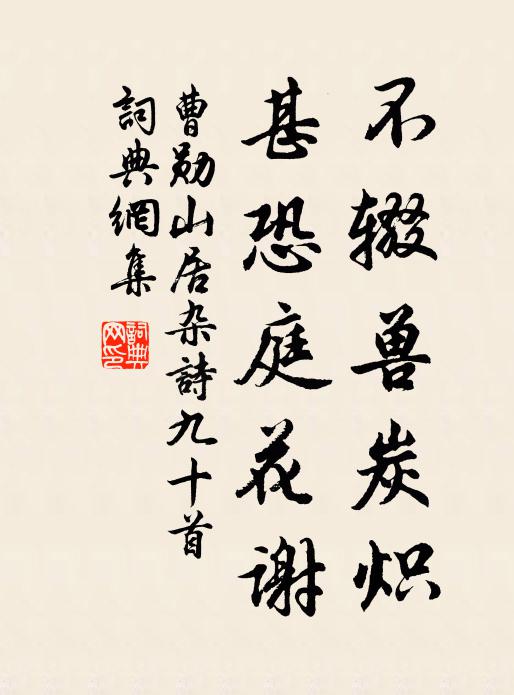 不辍兽炭炽
甚恐庭花谢
曹勋山居杂詩九十首
詞典網集
詞典網印